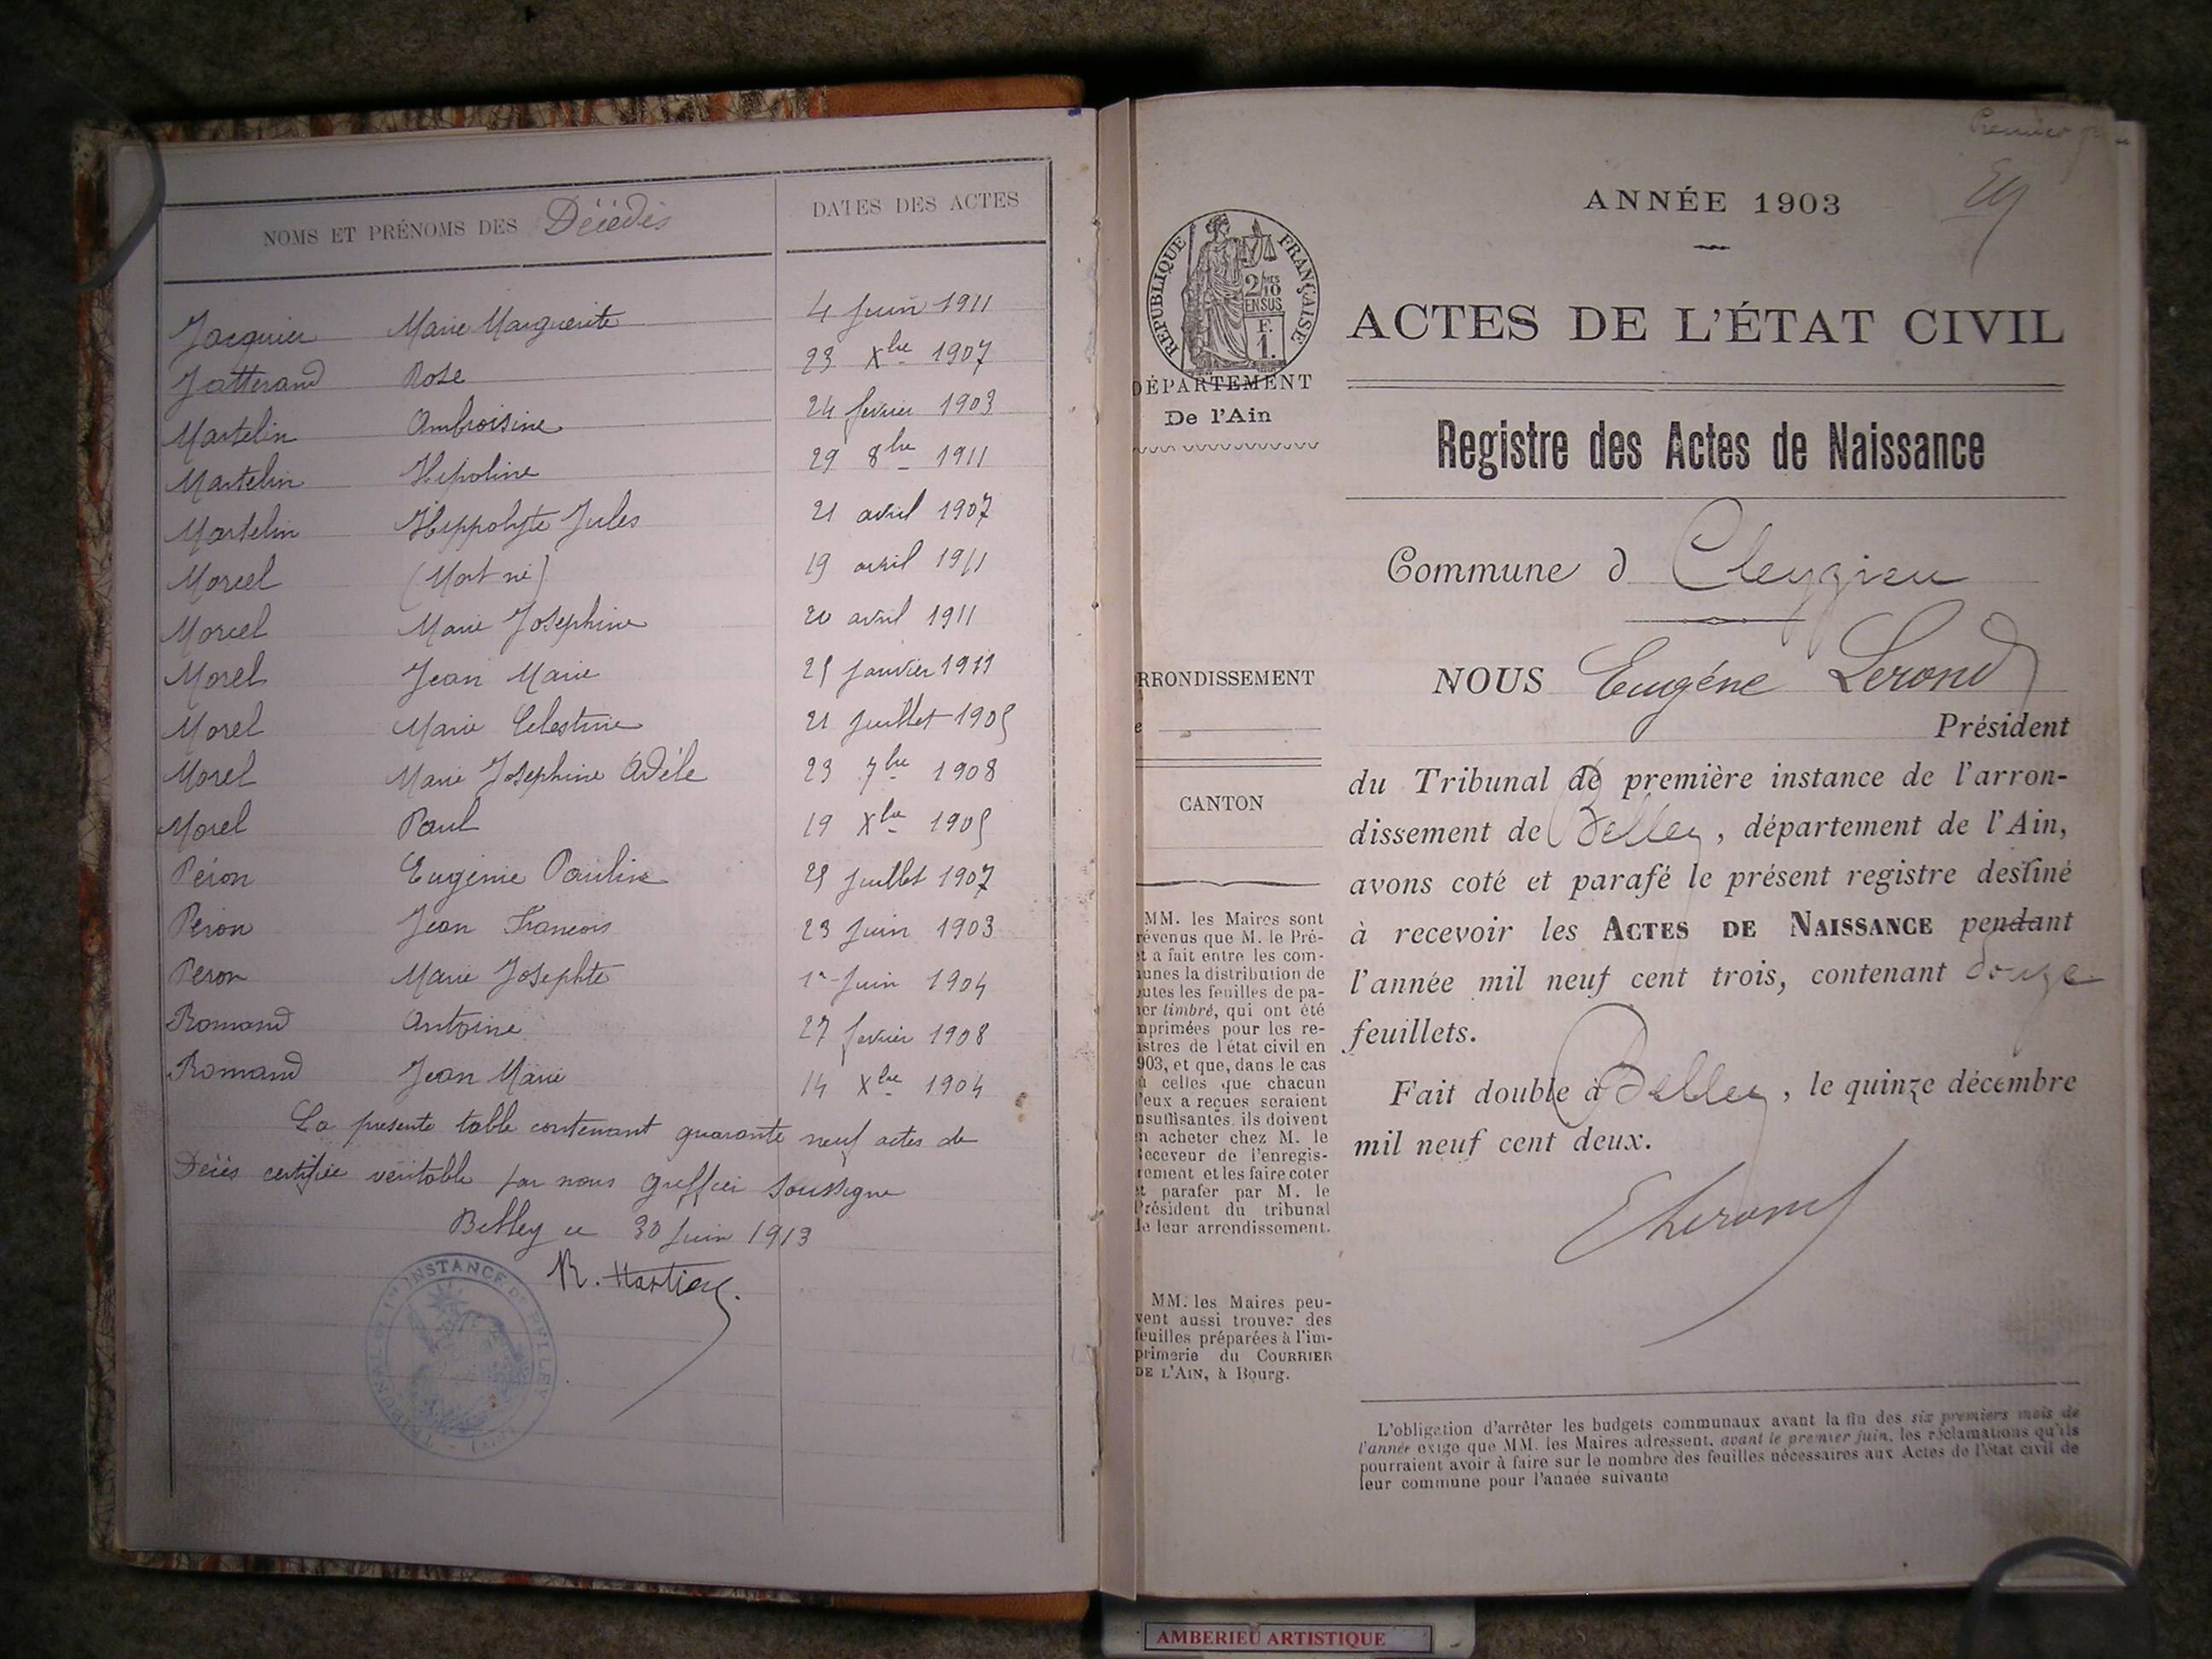 NOMS ET PRÉNOMS DES Décédés
DATES DES ACTES
Jacquier Marie Marguerite 4 Juin 1911
Jatterand Rose 23 Xbre 1907
Martelin Ambroisine 24 février 1903
Martelin Hipoline 29 8bre 1911
Martelin Hippolyte Jules 21 avril 1907
Morcel (Mort né) 19 avril 1911
Morcel Marie Josephine 20 avril 1911
Morel Jean Marie 25 Janvier 1911
Morel Marie Celestine 21 Juillet 1905
Morel Marie Josephine Adèle 23 7bre 1908
Morel Paul 19 Xbre 1905
Péron Eugénie Pauline 25 Juillet 1907
Péron Jean Francois 23 Juin 1903
Peron Marie Josephte 1er Juin 1904
Romand Antoine 27 février 1908
Romand Jean Marie 14 Xbre 1904
La presente table contenant quarante neuf actes de
Décès certifiée veritable par nous Greffier soussigne
Belley ce 30 Juin 1913
TRIBUNAL DE 1re INSTANCE DE BELLEY (Ain)
Premier
ANNÉE 1903
RÉPUBLIQUE FRANÇAISE
2/10 EN SUS
F. 1.
ACTES DE L'ÉTAT CIVIL
DÉPARTEMENT
De l'Ain
Registre des Actes de Naissance
Commune d Cleyzieu
NOUS Eugéne Lerond
Président
du Tribunal de première instance de l'arron-
dissement de Belley, département de l'Ain,
avons coté et parafé le présent registre destiné
à recevoir les ACTES DE NAISSANCE pendant
l'année mil neuf cent trois, contenant douze
feuillets.
Fait double à Belley, le quinze décembre
mil neuf cent deux.
ELerond
RRONDISSEMENT
e
CANTON
MM. les Maires sont
révenus que M. le Pré-
et a fait entre les com-
unes la distribution de
outes les feuilles de pa-
ier timbré, qui ont été
mprimées pour les re-
istres de l'état civil en
903, et que, dans le cas
ù celles que chacun
'eux a reçues seraient
nsuffisantes, ils doivent
n acheter chez M. le
eceveur de l'enregis-
rement et les faire coter
t parafer par M. le
Président du tribunal
de leur arrendissement.
MM. les Maires peu-
vent aussi trouver des
feuilles préparées à l'im-
primerie du COURRIER
DE L'AIN, à Bourg.
L'obligation d'arrêter les budgets communaux avant la fin des six premiers mois de
l'année exige que MM. les Maires adressent, avant le premier juin, les réclamations qu'ils
pourraient avoir à faire sur le nombre des feuilles nécessaires aux Actes de l'état civil de
leur commune pour l'année suivante
AMBERIEU ARTISTIQUE